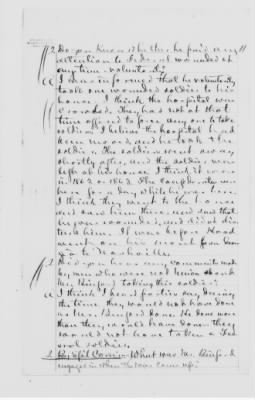 2. Do you know whether he paid any
attention to Federal wounded at
any time voluntarily?
a I was informed that he voluntarily
took one wounded soldier to his
house, I think the hospital was
crowded. They had not at that
time offered to force any one to take
soldiers. I believe the hospital had
been moved, and he took the
soldier. The soldiers went away
shortly after, and the soldier was
left at his house. I think it was
in 1862 or 1863. The confederates were
here for a day while he was there.
I think they went to the house
and saw him there, and saw that
he was wounded, and did not dis
turb him. It was before Hood
went on his march from
to Nashville.
2. Did you hear any comments made
by men who were not Union about
Mr. Binford taking this soldier?
a I think I heard parties say, during
the time they would not have done
as Mr. Binford done. He done more
than they would have done—they
would not have taken a Fed
eral soldier.
2. By Spl Com: What was Mr. Binford
engaged in when the war came up?